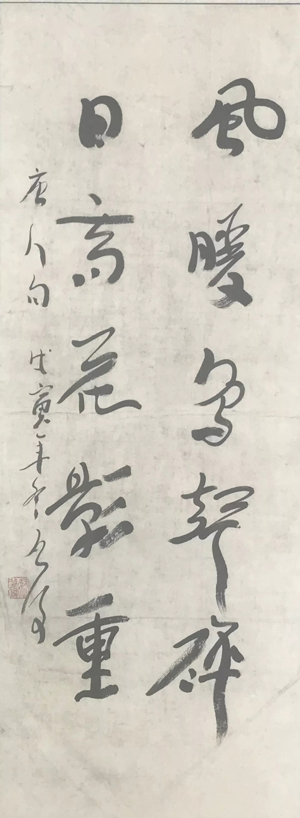 風暖鳥聲碎
日高花影重
唐人句 戊寅年冬